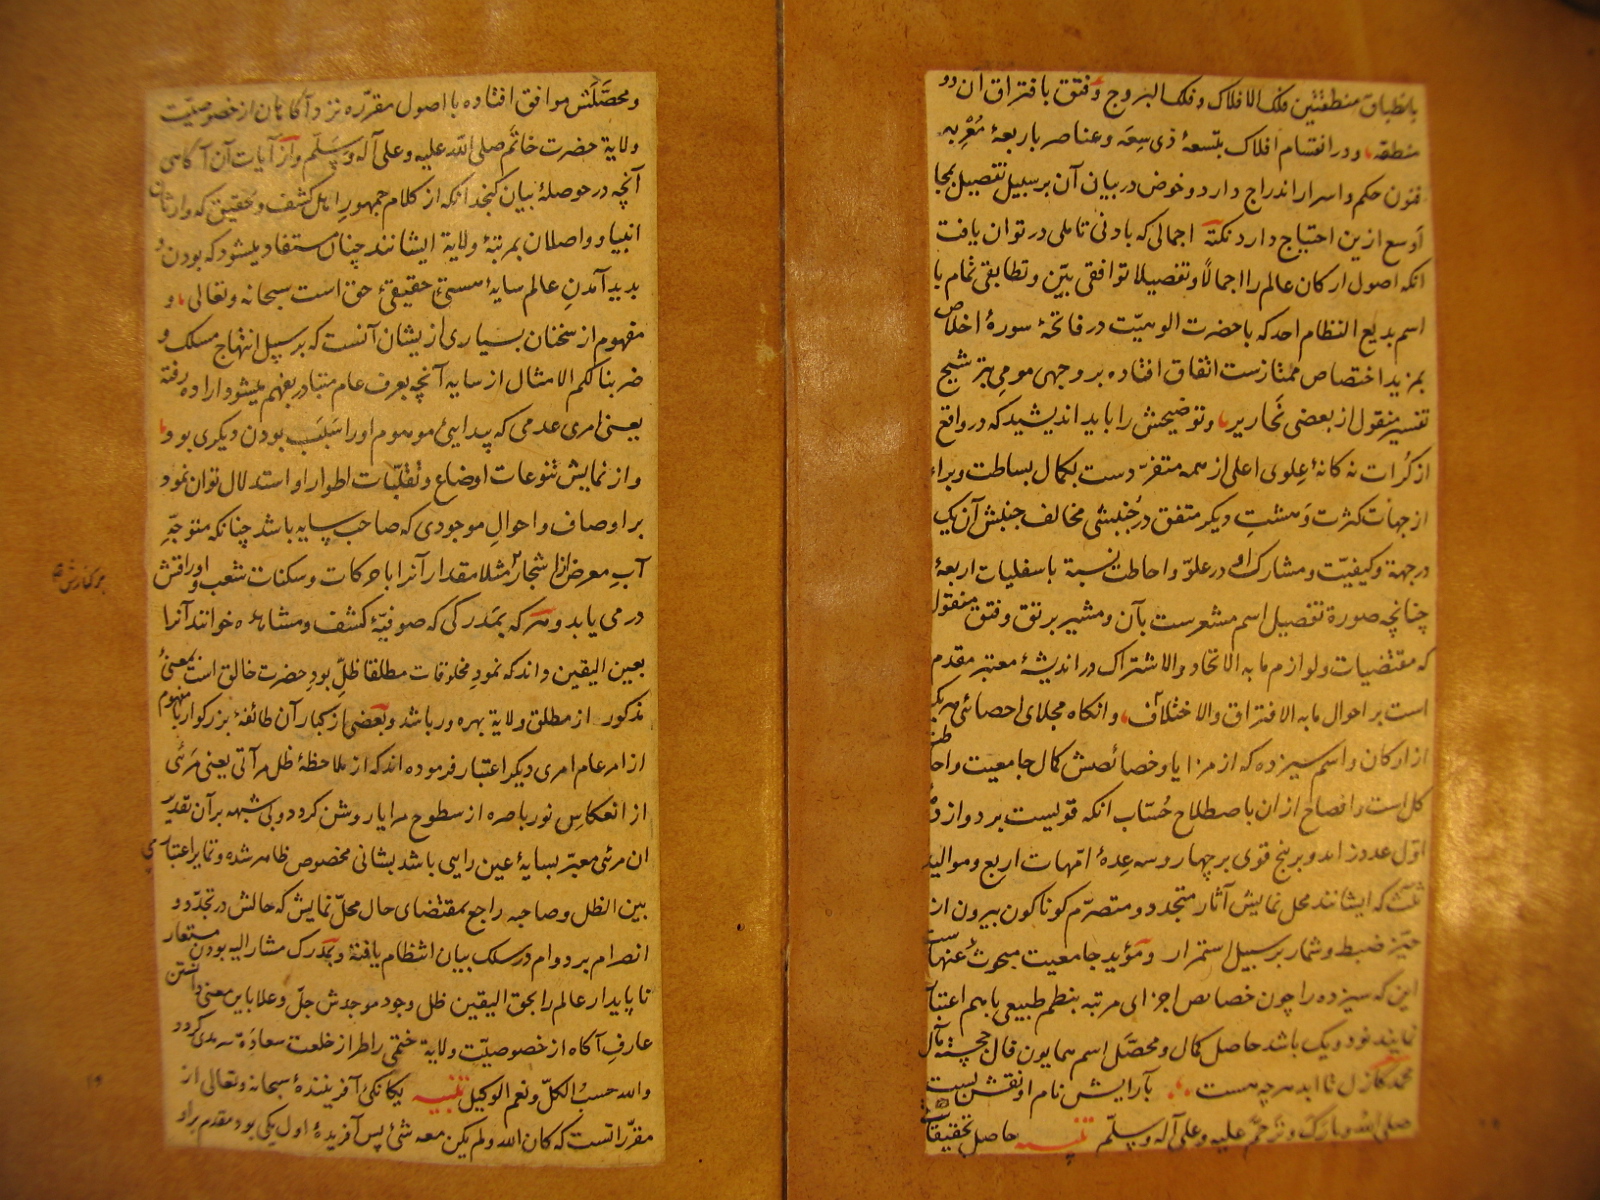 بانطباق منطقتین فلک الافلاک و فلک البروج و فتق بافتراق آن دو
منطقه، و در انقسام افلاک بتسعهٔ ذی سِعَه و عناصر باربعهٔ مُعْرِبه
فنون حکم و اسرار اندراج دارد و خوض در بیان آن بر سبیل تفصیل بمجا
اوسع ازین احتیاج دارد نکتهٔ اجمالی که بادنی تاملی در توان یافت
آنکه اصول ارکان عالم را اجمالًا و تفصیلا توافقی بیّن و تطابقی تمام با
اسم بدیع النظام احد که باحضرت الوهیّت در فاتحهٔ سورهٔ اخلاص
بمزید اختصاص ممتازست اتفاق افتاده بر وجهی مومی بترشیح
تفسیر منقول از بعضی نحاریر، و توضیحش را باید اندیشید که در واقع
از کُرات نه کانهٔ علوی اعلی از همه متفرّدست بکمال بساطت و براء
از جهات کثرت و هشتِ دیکر متفق در جُنبشی مخالف جنبش آن یک
در جهة و کیفیّت و مشارک او در علوّ و احاطت نسبة باسفلیات اربعهٔ
چنانچه صورة تفصیل اسم مشعرست بآن و مشیر برتق و فتق منقول
که مقتضیات و لوازم ما به الاتحاد والاشتراک در اندیشهٔ معتبر مقدم
است بر احوال ما به الافتراق والاختلاف، و انکاه مجلای احصائی هریک
از ارکان و اسم سیزده که از مزایا و خصائصش کمال جامعیت و احاطت
کل است و افصاح از ان باصطلاح حُسّاب انکه قویست بر دو از
اوّل عدد زاید و بر پنج قوی بر چهار و سه عِدهٔ امّهات اربع و موالید
ثلث که ایشانند محل نمایش آثار متجدد و متصرّم کوناکون بیرون از
حیّز ضبط و شمار بر سبیل استمرار و مؤید جامعیت مبحوثُ عنهاست
این که سیزده را چون خصایص اجزای مرتبه بنظم طبیعی باهم اعتبا
نمایند نود و یک باشد حاصل کمال و محصّل اسم همایون فال خجسته مآل
محمّد کازل تا ابد هر چه هست بآرایش نام او نقش بست
صلی الله و بارک و ترحّم علیه و علی آله و سلّم تنبیه حاصل تحقیقاتی
و محصَّلش موافق افتاده با اصول مقرّره نزد آکاهان از خصوصیّت
ولایة حضرت خاتم صلی الله علیه و علی آله و سلّم و از آیات آن آکاهی
آنچه در حوصلهٔ بیان کنجد انکه از کلام جمهورِ اهل کشف و تحقیق که وارثان
انبیاء و واصلان بمرتبهٔ ولایة ایشانند چنان مستفاد میشود که بودن و
بدید آمدنِ عالم سایهٔ هستیِ حقیقیِ حق است سبحانه و تعالی، و
مفهوم از سخنان بسیاری از یشان آنست که بر سبیل انتهاج مسلک و
ضربنا لکم الامثال از سایه آنچه بعرف عام متبادر بفهم میشود اراده رفته
یعنی امری عدمی که پیدایئ موهوم او را سَبَب بودن دیکری بود،
و از نمایش تنوعات اوضاع و تقلّبات اطوار او استدلال توان نمود
بر اوصاف و احوالِ موجودی که صاحب سایه باشد چنانکه متوجّهِ
آبِ معرض از اشجار مثلا مقدار آنرا با حرکات و سکنات شعب و اوراقش
در می یابد و هر که بمَدرکی که صوفیّهٔ کشف و مشاهده خوانند آنرا
بعین الیقین داند که نمودِ مخلوقات مطلقا ظلّ بودِ حضرت خالق است بمعنیٔ
مذکور از مطلق ولایة بهره ور باشد و بعضی از کبار آن طائفهٔ بزرکوار بمفهوم
از امر عام امری دیکر اعتبار فرموده اند که از ملاحظهٔ ظل مرآتی یعنی مَرئی
از انعکاسِ نور باصره از سطوح مرایا روشن کردد و بی شبهه بر آن تقدیر
ان مرئی معبّر بسایهٔ عین رایی باشد بشانی مخصوص ظاهر شده و تمایز اعتباری
بین الظل و صاحبه راجع بمقتضای حال محلّ نمایش که حالش در تجدّد و
انصرام بر دوام در سلک بیان انتظام یافتهٔ و بمَدرک مشار الیه بودن مستعار
ناپایدار عالم را بحق الیقین ظل وجود موجدش جلّ و علا باین معنی دانستن
عارفِ آکاه از خصوصیّت ولایة ختمی را طراز خلعت سعادهٔ سرمدی کردد
والله حسبُ الکلّ و نعم الوکیل تنبیه یکانکیٔ آفرینندهٔ سبحانه و تعالی از
مقرّراتست که کان الله و لم یکن معه شئ پس آفریدهٔ اول یکی بود مقدم بر او